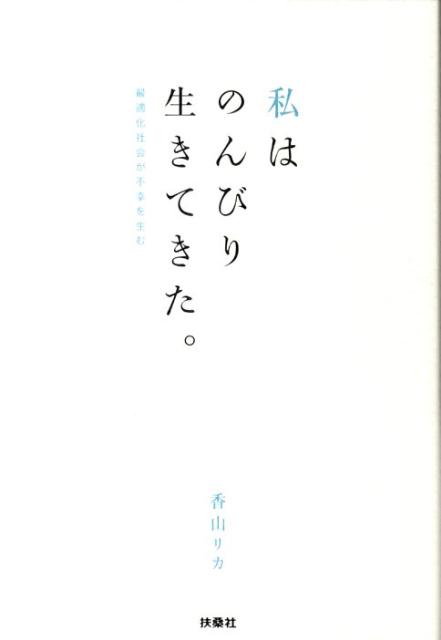 私は
のんびり
生きてきた。
最適化社会が不幸を生む
香山リカ
扶桑社